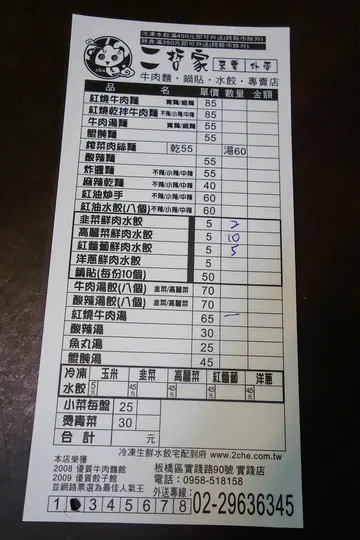 冷凍水餃滿450元即可外送(跨縣市除外)
熟食滿350元即可外送(跨縣市除外)
二哲家 來電 外帶
牛肉麵·鍋貼·水餃·專賣店
品 名 單價 數量 金額
紅燒牛肉麵 寬麵/細麵 85
紅燒乾拌牛肉麵 不辣/小辣/中辣 85
牛肉湯麵 55
餛飩麵 55
榨菜肉絲麵 乾55 湯60
酸辣麵 55
炸醬麵 不辣/小辣/中辣 55
麻辣乾麵 不辣/小辣/中辣 40
紅油炒手 不辣/小辣/中辣 60
紅油水餃(八個) 不辣/小辣/中辣 60
韭菜鮮肉水餃 5 2
高麗菜鮮肉水餃 5 10
紅蘿蔔鮮肉水餃 5 5
洋蔥鮮肉水餃 5
鍋貼(每份10個) 50
牛肉湯餃(八個) 韭菜/高麗菜 70
酸辣湯餃(八個) 韭菜/高麗菜 70
紅燒牛肉湯 65 一
酸辣湯 30
魚丸湯 25
餛飩湯 45
冷凍 玉米 韭菜 高麗菜 紅蘿蔔 洋蔥
水餃 5元 45元 45元 45元 45元
小菜每盤 25
燙青菜 30
合計 元
冷凍生鮮水餃宅配到府 www.2che.com.tw
本店榮獲
2008 優質牛肉麵館
2009 優質餃子館
並網路票選為最佳人氣王
板橋區實踐路90號 實踐店
電話:0958-518158
外送專線:
02-29636345
1 3 4 5 6 7 8